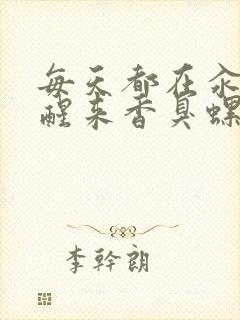 每天都在汆
醒来香臭螺
李幹朗